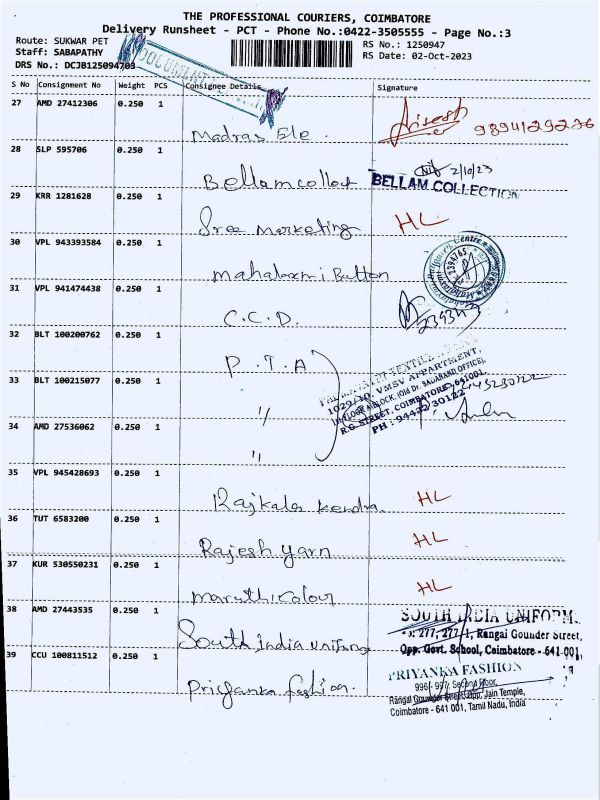 THE PROFESSIONAL COURIERS, COIMBATORE
Delivery Runsheet - PCT - Phone No.:0422-3505555 - Page No.:3
Route: SUKWAR PET
RS No.: 1250947
Staff: SABAPATHY
RS Date: 02-Oct-2023
DRS No.: DCJB125094703
DOCUMENT
S No Consignment No Weight PCS Consignee Details Signature
27 AMD 27412306 0.250 1
Madras Ele. 9894129226
28 SLP 595706 0.250 1
2/10/23
Bellamcollet BELLAM COLLECTION
29 KRR 1281628 0.250 1
Sree Marketing HL
30 VPL 943393584 0.250 1
mahalaxmi Button
31 VPL 941474438 0.250 1
C.C.D.
32 BLT 100200762 0.250 1
P.T.A
33 BLT 100215077 0.250 1
1029/30, VMSV APPARTMENT,
R.G. STREET, COIMBATORE-641001.
PH : 94422 30122
"
34 AMD 27536062 0.250 1
"
35 VPL 945428693 0.250 1
Rajkala Kendra. HL
36 TUT 6583200 0.250 1
Rajesh yarn HL
37 KUR 530550231 0.250 1
maruthi colour HL
38 AMD 27443535 0.250 1
SOUTH INDIA UNIFORM.
277, 277/1, Rangai Gounder Street,
South India uniform Opp. Govt. School, Coimbatore - 641 001,
39 CCU 100811512 0.250 1
PRIYANKA FASHION
996 - 997, Second Floor,
Priyanka fashion. Rangai Gounder Street, Opp. Jain Temple,
Coimbatore - 641 001, Tamil Nadu, India